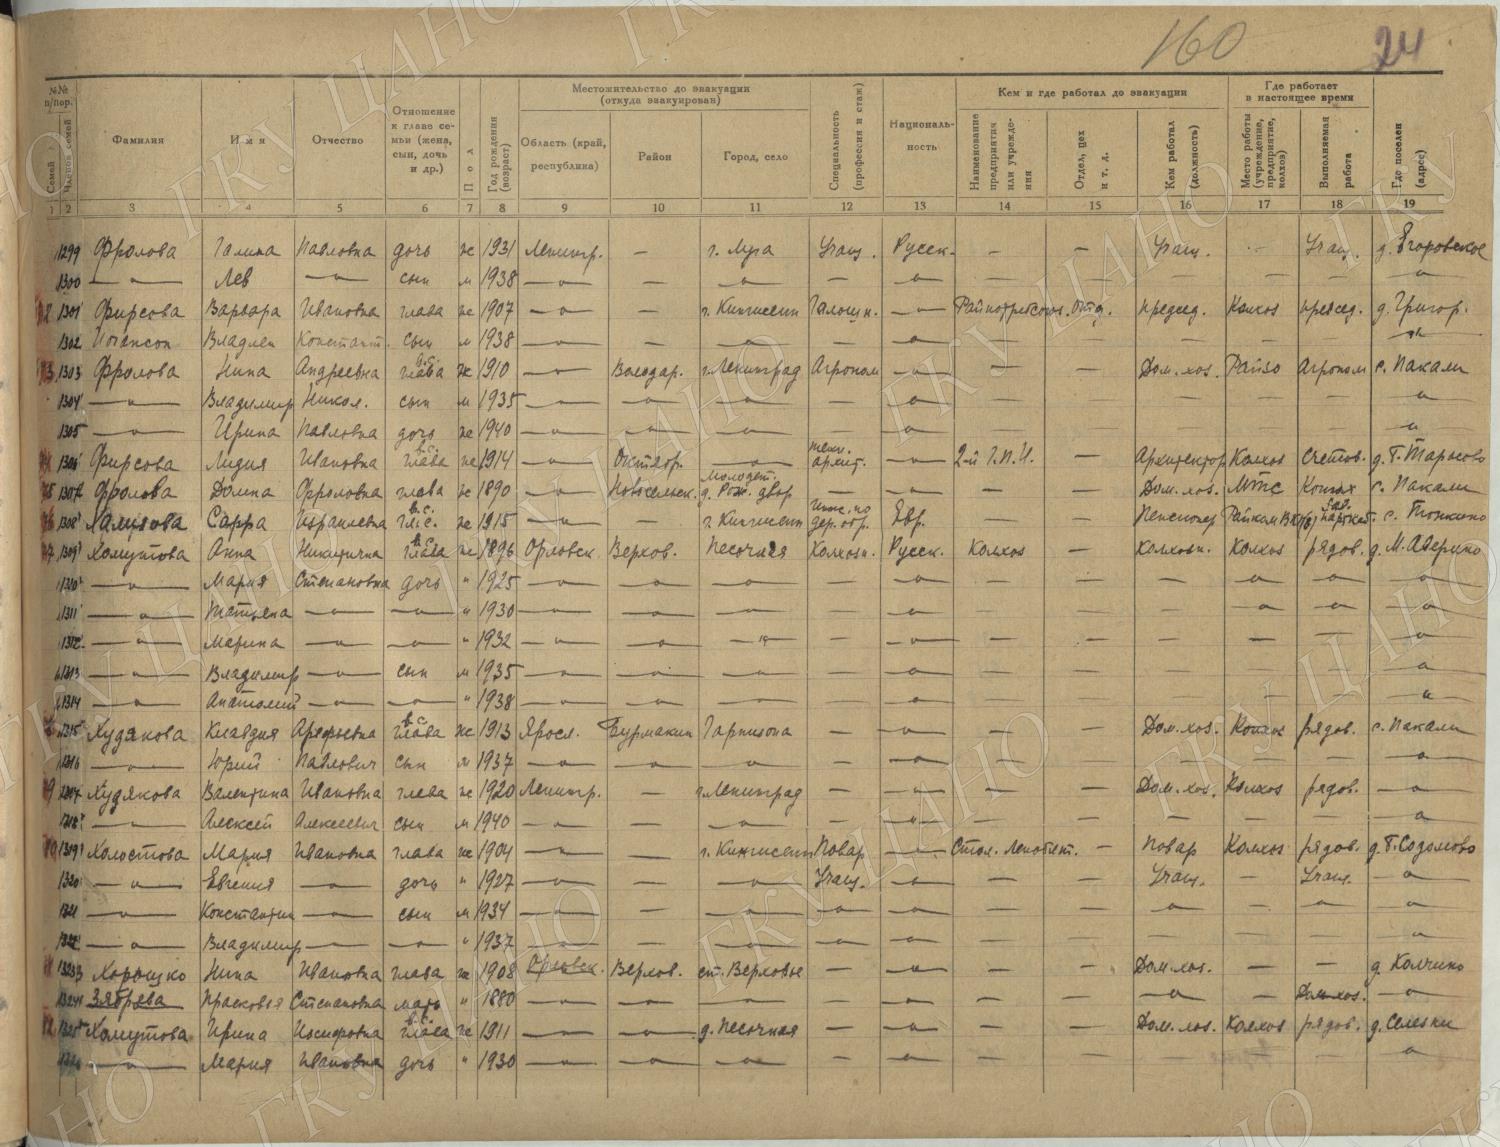 160 24
№№ п/пор. Фамилия Имя Отчество Отношение к главе семьи (жена, сын, дочь и др.) Пол Год рождения (возраст) Местожительство до эвакуации (откуда эвакуирован) Специальность (профессия и стаж) Национальность Кем и где работал до эвакуации Где работает в настоящее время Где поселен (адрес)
Семей Членов семей Область (край, республика) Район Город, село Наименование предприятия или учреждения Отдел, цех и т. д. Кем работал (должность) Место работы (учреждение, предприятие, колхоз) Выполняемая работа
1 2 3 4 5 6 7 8 9 10 11 12 13 14 15 16 17 18 19
1299 Фролова Галина Павловна дочь ж 1931 Ленингр. — г. Луга Учащ. Русск. — — Учащ. — Учащ. д. Егоровское
1300 —"— Лев —"— сын м 1938 —"— — —"— — —"— — — — — — —"—
1301 Фирсова Варвара Ивановна глава ж 1907 —"— — г. Кингисепп Галошн. —"— Райпотребсоюз. Отд. председ. Колхоз председ. д. Григор.
1302 Иогансон Владлен Константи. сын м 1938 —"— — —"— — —"— — — — — — —"—
1303 Фролова Нина Андреевна глава ж 1910 —"— Володар. г. Ленинград Агроном —"— — — Дом. хоз. Райзо Агроном с. Пакали
1304 —"— Владимир Никол. сын м 1935 —"— — —"— — —"— — — — — — —"—
1305 —"— Ирина Павловна дочь ж 1940 —"— —"— —"— — —"— —"—
1306 Фирсова Лидия Ивановна в.с. глава ж 1914 —"— Октябр. —"— техн. архит. —"— 2-й Г.П.И. — Архитектор Колхоз Счетов. д. Б. Тарасово
1307 Фролова Домна Фроловна глава ж 1890 —"— Новосельск. Молодет. д. Рож. двор — —"— — — Дом. хоз. МТС Конюх с. Пакали
1308 Сарра Израилевна в.с. ж 1915 —"— — г. Кингисепп дер. обр. Евр. — — Пенсионер Райком ВКП(б) с. Тонкино
1309 Хомутова Анна Никитична в.с. глава ж 1896 Орловск. Верхов. Песочная Колхозн. Русск. Колхоз — колхозн. Колхоз рядов. д. М. Аверино
1310 —"— Мария Степановна дочь " 1925 —"— —"— —"— — —"— — — — —"— —"— —"—
1311 —"— Татьяна —"— —"— " 1930 —"— —"— —"— — —"— — — — —"— —"— —"—
1312 —"— Марина —"— —"— " 1932 —"— —"— —"— — —"— — — — — — —"—
1313 —"— Владимир —"— сын м 1935 —"— —"— —"— — —"— — — — — — —"—
1314 —"— Анатолий —"— —"— " 1938 —"— —"— —"— — —"— — — — — — —"—
1315 Худякова Клавдия Арефьевна в.с. глава ж 1913 Яросл. Бурмакин Гарнизона — —"— — — Дом. хоз. Колхоз рядов. с. Пакали
1316 —"— Юрий Павлович сын м 1937 —"— —"— —"— — —"— — — — — — —"—
1317 Худякова Валентина Ивановна глава ж 1920 Ленингр. — г. Ленинград — —"— — — Дом. хоз. Колхоз рядов. —"—
1318 —"— Алексей Алексеевич сын м 1940 —"— — —"— — —"— — — — — — —"—
1319 Холостова Мария Ивановна глава ж 1904 —"— — г. Кингисепп Повар —"— Стол. — Повар Колхоз рядов. д. Б. Содомово
1320 —"— Евгения —"— дочь " 1927 —"— — —"— Учащ. —"— — — Учащ. — Учащ. —"—
1321 —"— Константин —"— сын м 1934 —"— — —"— —"— —"— — — —"— — —"— —"—
1322 —"— Владимир —"— —"— " 1937 —"— — —"— —"— —"— — — — — — —"—
1323 Хорошко Нина Ивановна глава ж 1908 Орловск. Верхов. ст. Верховье — —"— — — Дом. хоз. — — д. Колчино
1324 Зябрева Прасковья Степановна мать " 1880 —"— — — — —"— — — —"— — Дом. хоз. —"—
1325 Хомутова Ирина Иосифовна в.с. глава ж 1911 —"— — д. Песочная — —"— — — Дом. хоз. Колхоз рядов. д. Селезни
1326 —"— Мария Ивановна дочь " 1930 —"— —"— —"— — —"— — — — — — —"—
ГКУ ЦАНО